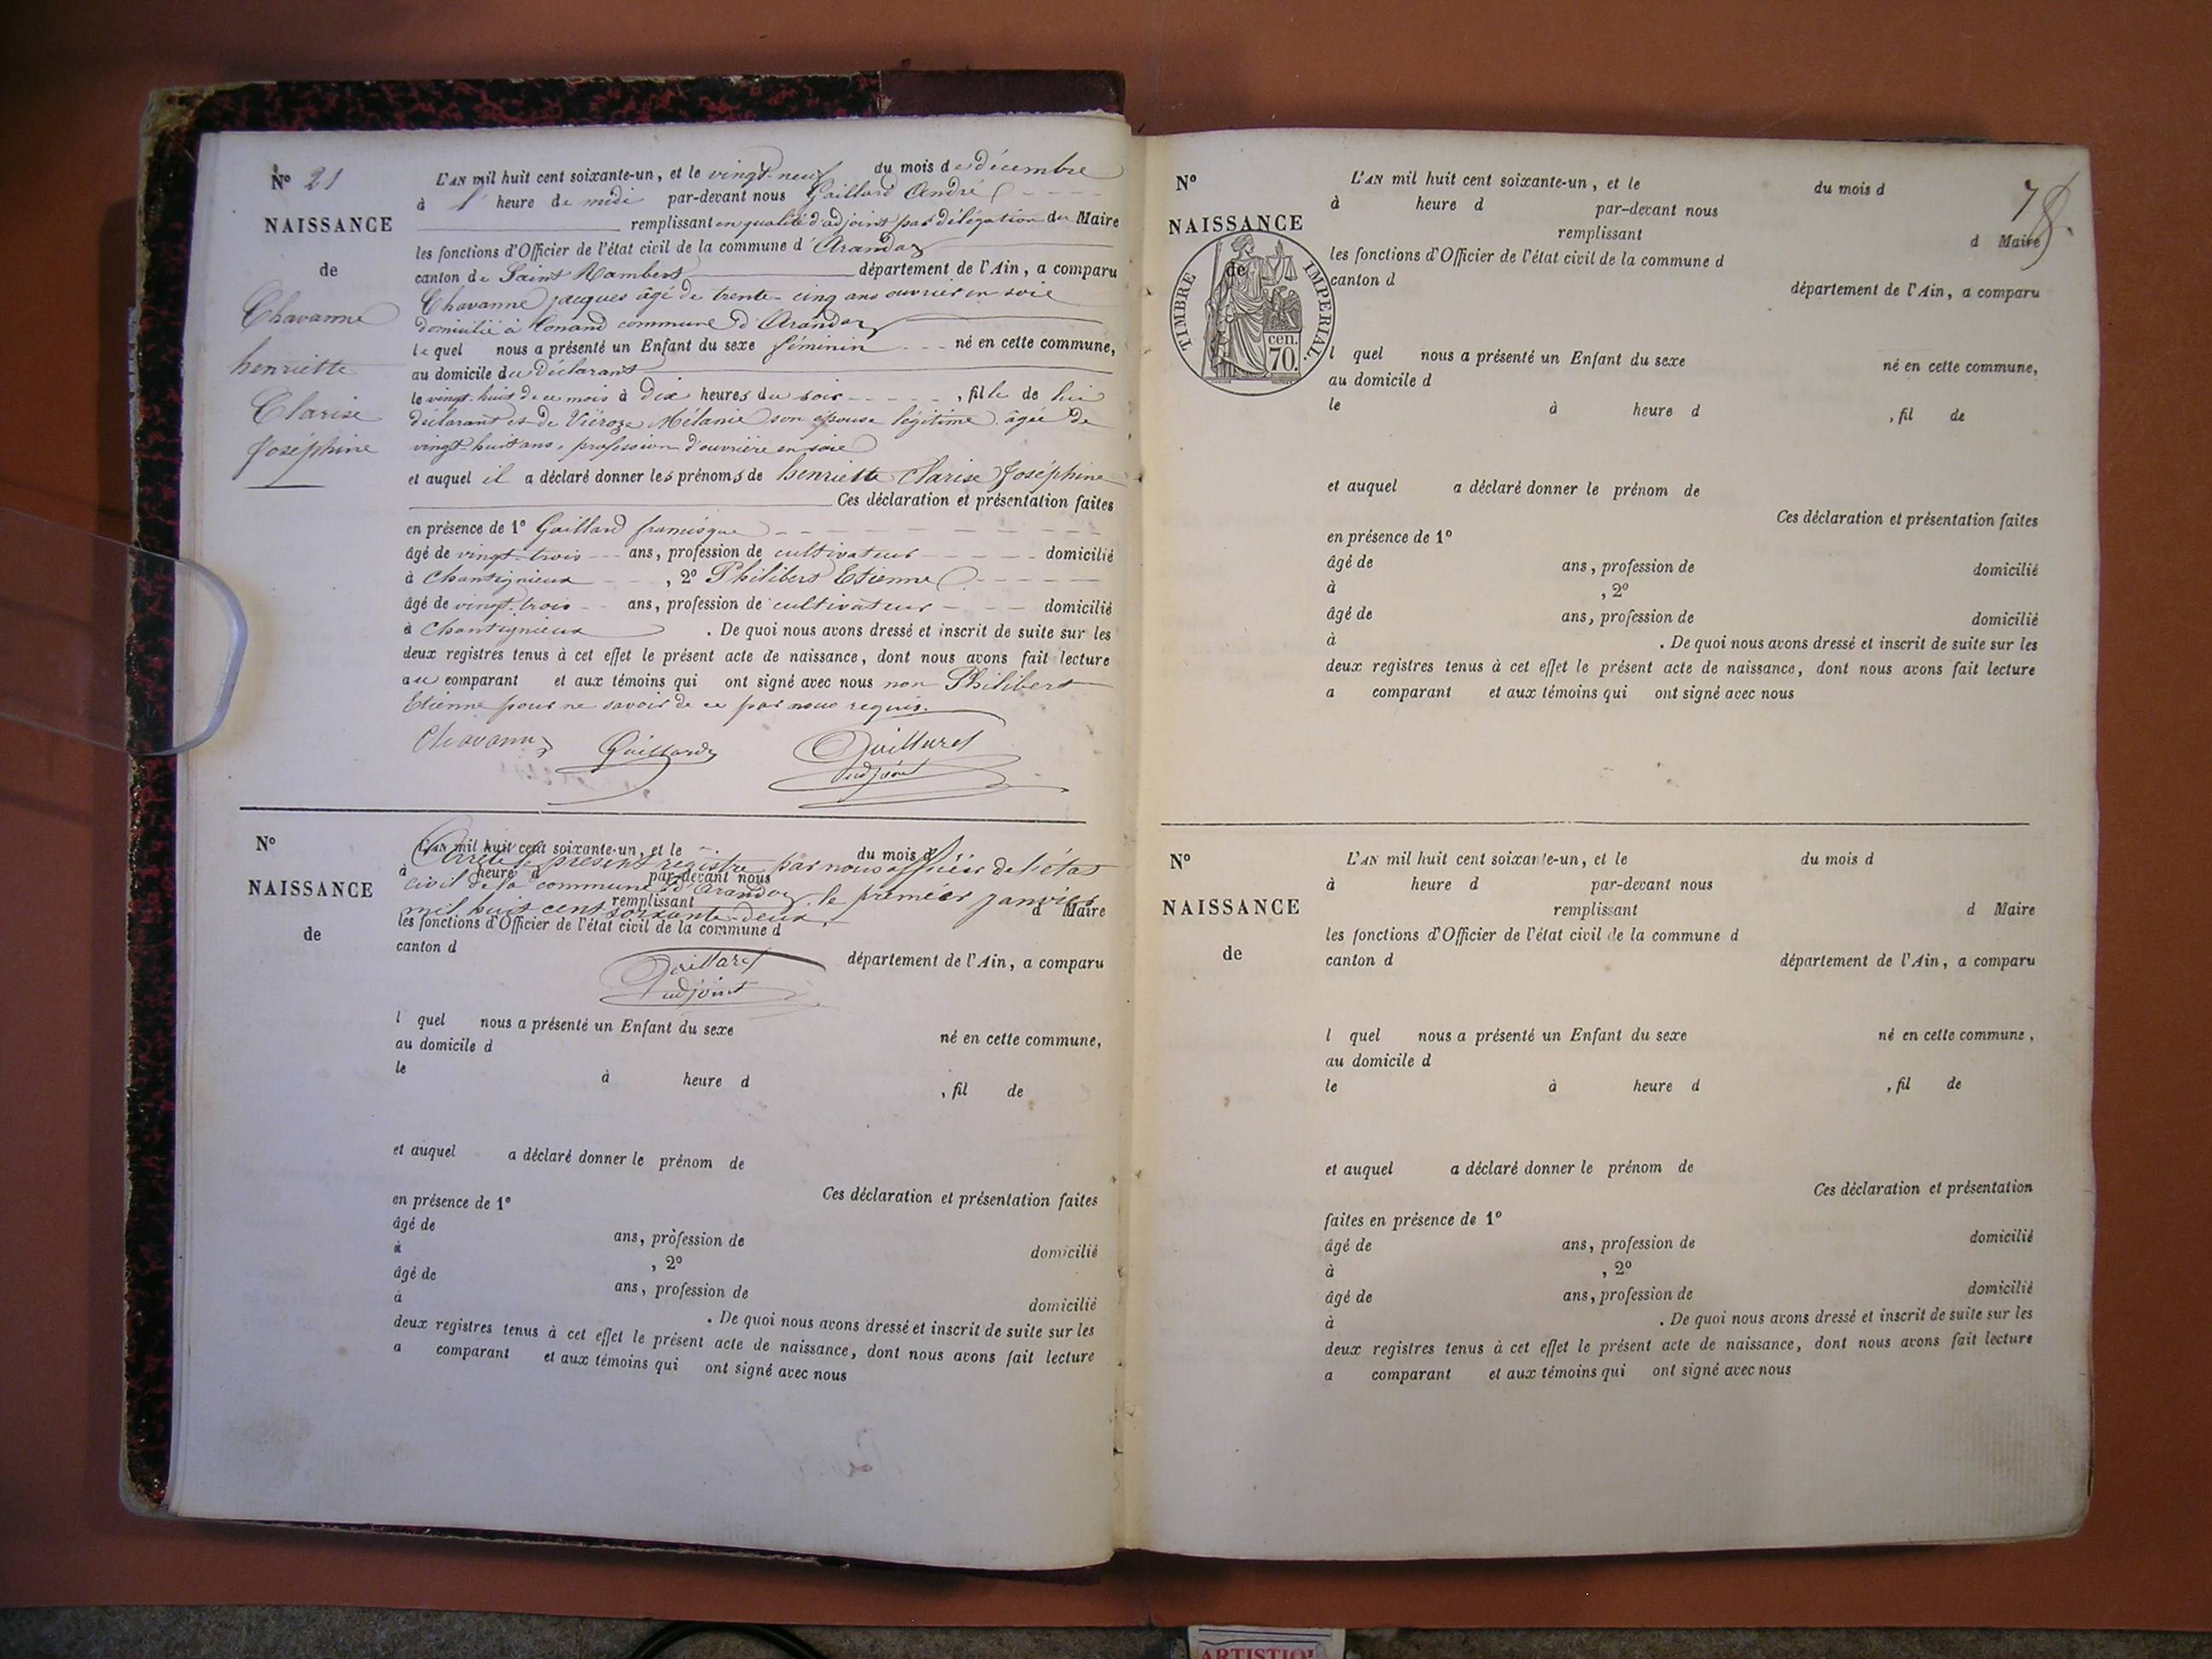 N° 21
NAISSANCE
de
Chavanne
henriette
Clarise
Joséphine
L'AN mil huit cent soixante-un, et le vingt-neuf du mois de décembre
à 1 heure de midi par-devant nous Gaillard André
remplissant en qualité d'adjoint par délégation du Maire
les fonctions d'Officier de l'état civil de la commune d'Arandaz
canton de Saint Rambert département de l'Ain, a comparu
Chavanne jacques âgé de trente-cinq ans ouvrier en soie
domicilié à Conand commune d'Arandaz
le quel nous a présenté un Enfant du sexe féminin né en cette commune,
au domicile du déclarant
le vingt-huit de ce mois à dix heures du soir, fille de lui
déclarant et de Viéroze Mélanie son épouse légitime âgée de
vingt-huit ans, profession d'ouvrière en soie
et auquel il a déclaré donner les prénoms de henriette Clarise Joséphine
Ces déclaration et présentation faites
en présence de 1° Gaillard francisque
âgé de vingt-trois ans, profession de cultivateur domicilié
à Chantignieux, 2° Philibert Etienne
âgé de vingt-trois ans, profession de cultivateur domicilié
à Chantignieux. De quoi nous avons dressé et inscrit de suite sur les
deux registres tenus à cet effet le présent acte de naissance, dont nous avons fait lecture
au comparant et aux témoins qui ont signé avec nous non Philibert
Etienne pour ne savoir de ce par nous requis.
Chavanne Gaillard Gaillard
adjoint
N°
NAISSANCE
de
L'AN mil huit cent soixante-un, et le du mois d
Arrêté le présent registre par nous officier de l'état
à heure d par-devant nous
civil de la commune d'Arandaz, le premier janvier
remplissant d Maire
mil huit cent soixante-deux.
les fonctions d'Officier de l'état civil de la commune d
canton d département de l'Ain, a comparu
Gaillard
adjoint
l quel nous a présenté un Enfant du sexe né en cette commune,
au domicile d
le à heure d , fil de
et auquel a déclaré donner le prénom de
Ces déclaration et présentation faites
en présence de 1°
âgé de ans, profession de domicilié
à , 2°
âgé de ans, profession de domicilié
à . De quoi nous avons dressé et inscrit de suite sur les
deux registres tenus à cet effet le présent acte de naissance, dont nous avons fait lecture
a comparant et aux témoins qui ont signé avec nous
N°
NAISSANCE
de
TIMBRE IMPERIAL.
cen.
70.
L'AN mil huit cent soixante-un, et le du mois d
à heure d par-devant nous
remplissant d Maire
les fonctions d'Officier de l'état civil de la commune d
canton d département de l'Ain, a comparu
l quel nous a présenté un Enfant du sexe né en cette commune,
au domicile d
le à heure d , fil de
et auquel a déclaré donner le prénom de
Ces déclaration et présentation faites
en présence de 1°
âgé de ans, profession de domicilié
à , 2°
âgé de ans, profession de domicilié
à . De quoi nous avons dressé et inscrit de suite sur les
deux registres tenus à cet effet le présent acte de naissance, dont nous avons fait lecture
a comparant et aux témoins qui ont signé avec nous
N°
NAISSANCE
de
L'AN mil huit cent soixante-un, et le du mois d
à heure d par-devant nous
remplissant d Maire
les fonctions d'Officier de l'état civil de la commune d
canton d département de l'Ain, a comparu
l quel nous a présenté un Enfant du sexe né en cette commune,
au domicile d
le à heure d , fil de
et auquel a déclaré donner le prénom de
Ces déclaration et présentation
faites en présence de 1°
âgé de ans, profession de domicilié
à , 2°
âgé de ans, profession de domicilié
à . De quoi nous avons dressé et inscrit de suite sur les
deux registres tenus à cet effet le présent acte de naissance, dont nous avons fait lecture
a comparant et aux témoins qui ont signé avec nous